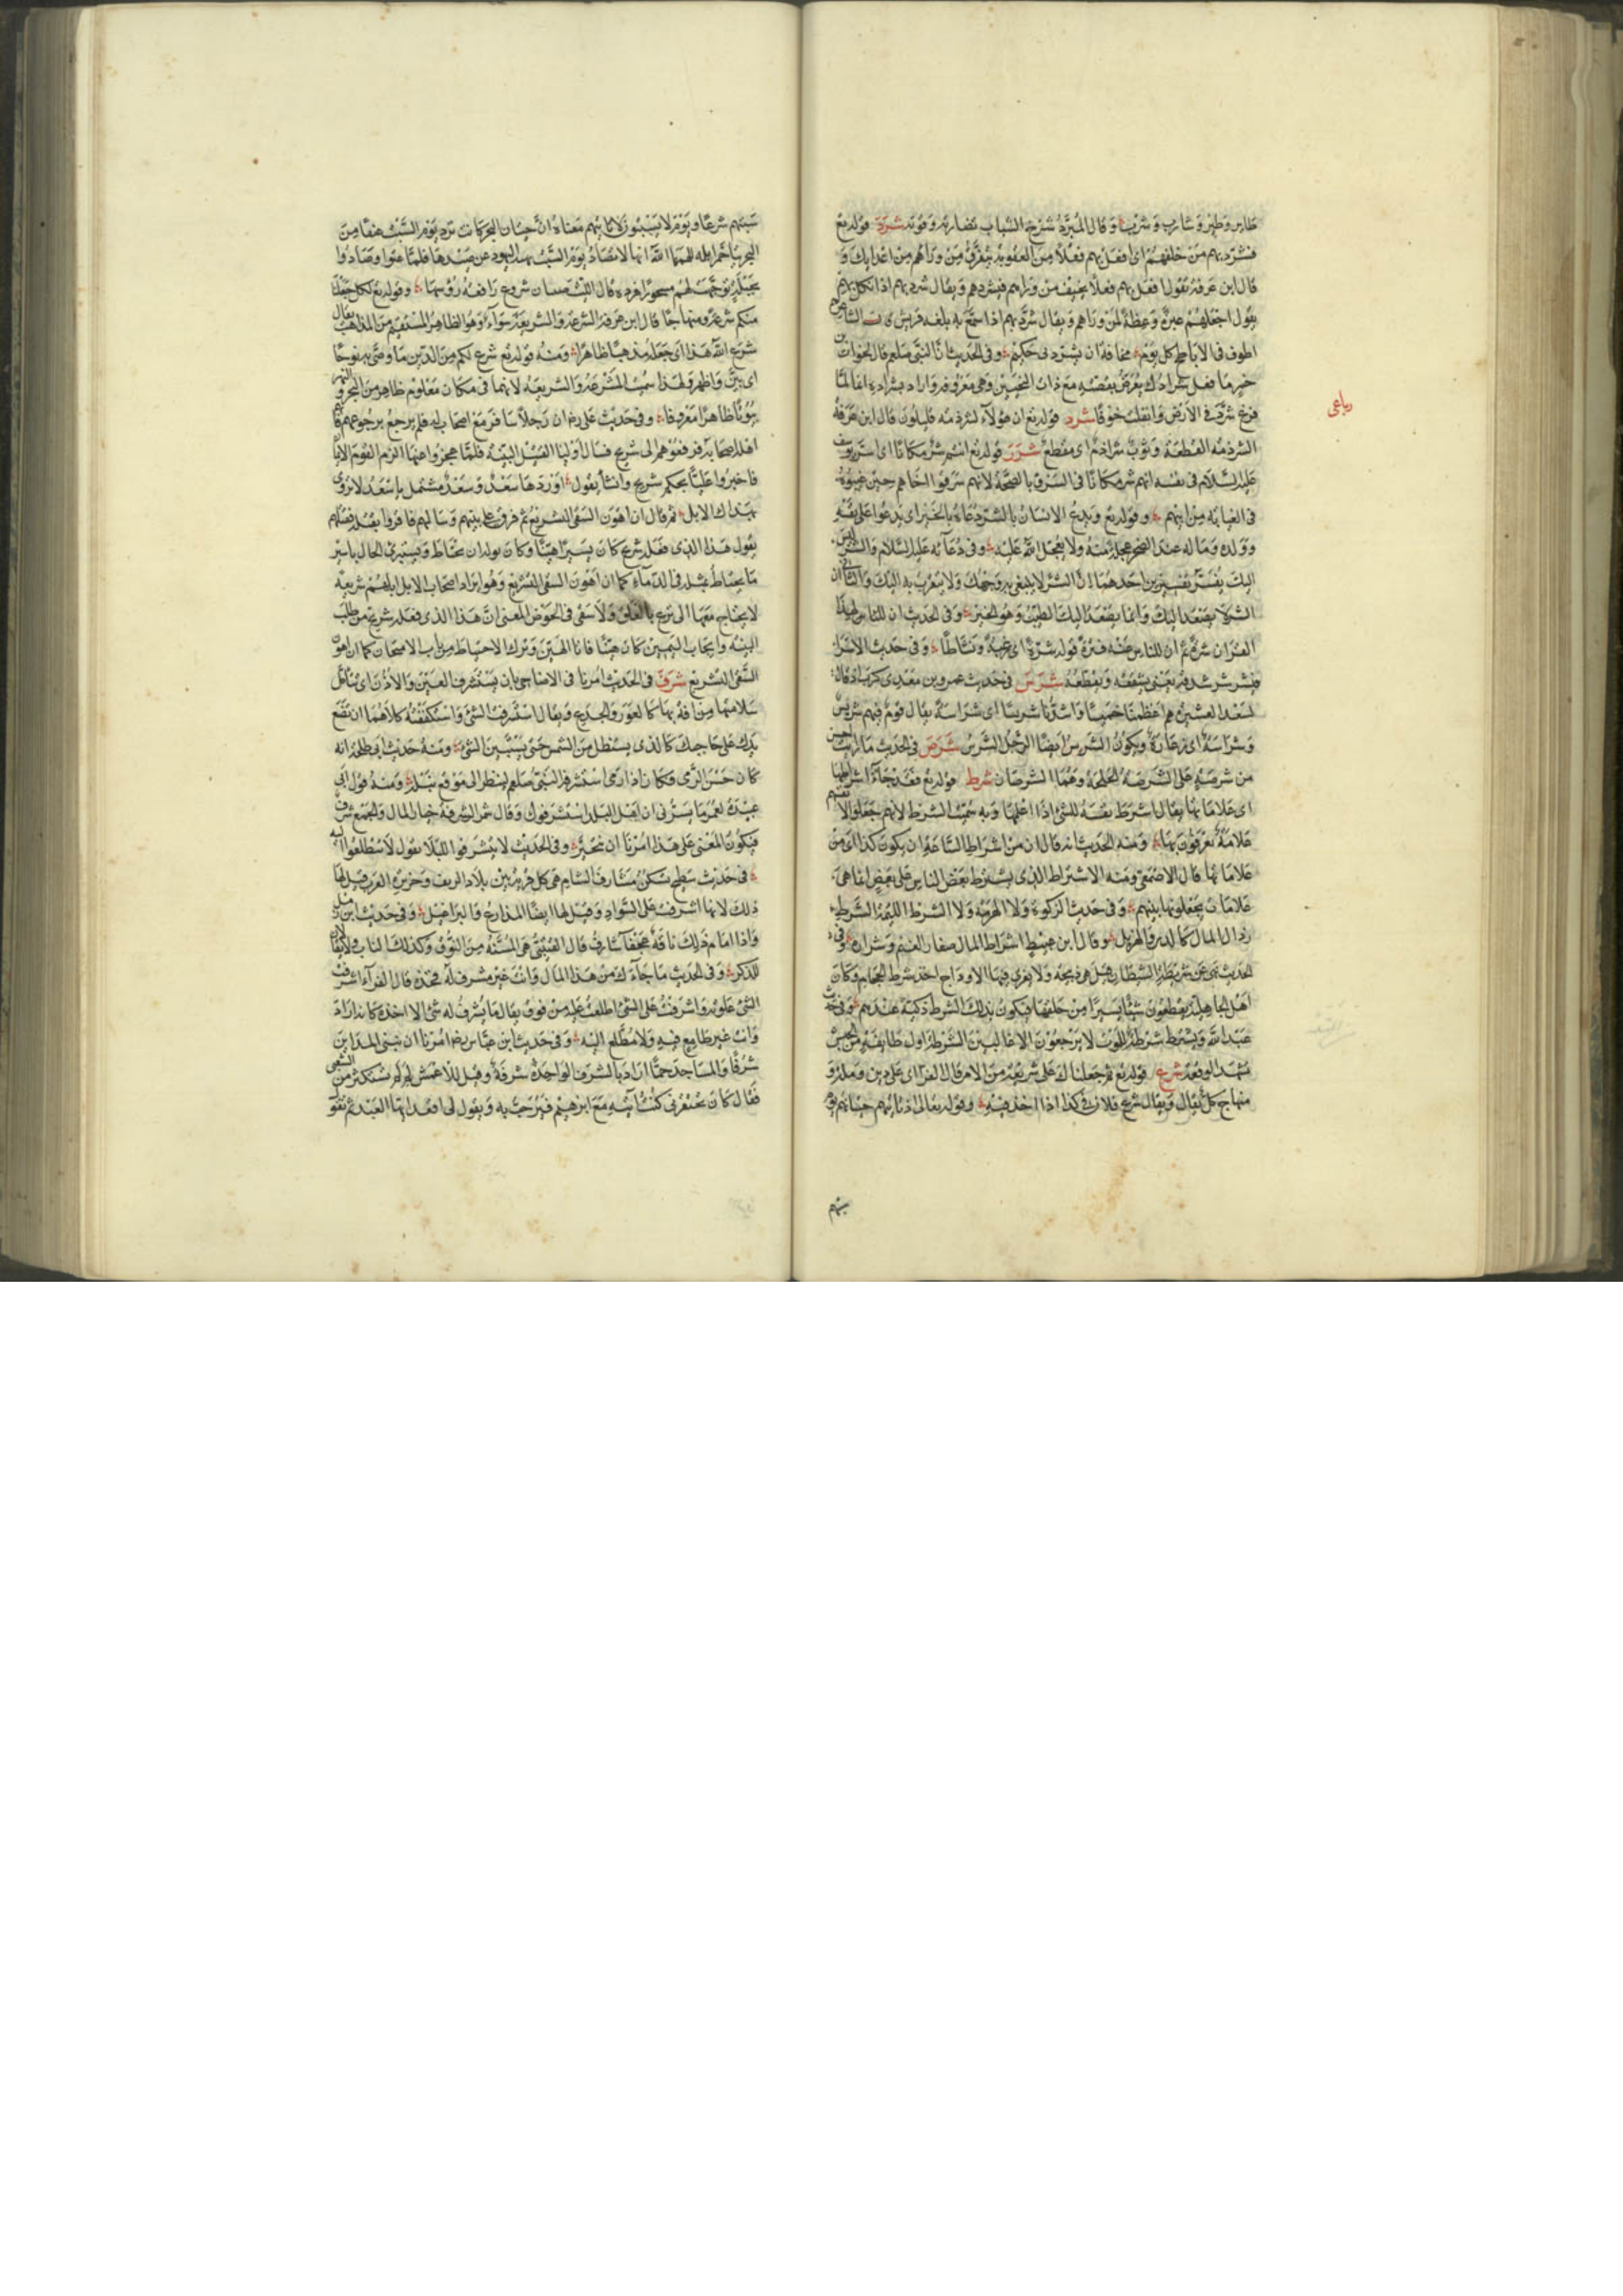 طاير وطير وشارب وشرب وقال المبرد شرخ الشباب نضارته وقوته شرد قوله تع
فشرد بهم من خلفهم اى افعل بهم فعلا من العقوبة يتفرق من وراهم من اعدايك و
قال ابن عرفة يقول افعل بهم فعلا يخيف من وراهم فيشردهم ويقال شرد بهم اذا نكل بهم
يقول اجعلهم عبرة وعظة لمن وراهم ويقال شرد بهم اذا سمع به بلغة قريش قال الشاعر
اطوف فى الاباطح كل يوم مخافة ان يشرد بى حكيم وفى الحديث ان النبى صلعم قال لخوات بن
جبير ما فعل شرادك يعرض بقصته مع ذات النحيين وهى معروفة واراد بشراده انه لما
فزع شرد فى الارض وانفلت خوفا شرد قوله تع ان هولآء لشرذمة قليلون قال ابن عرفة
الشرذمة القطعة وثوب شراذم اى مقطع شرر قوله تع انتم شر مكانا اى اسر يوسف
عليه السلام فى نفسه انهم شر مكانا فى السرق بالصحة لانهم سرقوا اخاهم حين غيبوه
فى الغيابة من ابيهم وقوله تع ويدع الانسان بالشر دعاه بالخير اى يدعوا على نفسه
وولده وماله عند الضجر عجلة منه ولا يعجل الله عليه وفى دعآئه عليه السلام والشر ليس
اليك يفسر تفسيرين احدهما ان الشر لا يبتغى به وجهك ولا يتقرب به اليك والثانى ان
الشر لا يصعد اليك وانما يصعد اليك الطيب وهو الخير وفى الحديث ان لهذا
القران شرة ثم ان للناس عنه فترة قوله شرة اى رغبة ونشاطا وفى حديث الاسرا
فيشرشر شدقه يعنى يشققه ويقطعه شرس فى حديث عمرو بن معدى كرب اذ قال
لسعد العشيرة هم اعظمنا خميسا واشدنا شريسا اى شراسة يقال قوم فيهم شريس
وشراسة اى زعارة ويكون الشرس ايضا الرجل الشرس شرص فى الحديث ما رايت احسن
من شرصة على الشرصة الجلحة وهما الشرصان شرط قوله تع فقد جآء اشراطها
اى علاماتها يقال اشرط نفسه للشى اذا اعلمها وبه سميت الشرط لانهم جعلوا لانفسهم
علامة يعرفون بها ومنه الحديث انه قال ان من اشراط الساعة ان يكون كذا اى من
علاماتها قال الاصمعى ومنه الاشتراط الذى يشترط بعض الناس على بعض انما هى
علامات يجعلونها بينهم وفى حديث الزكوة ولا الهرمة ولا الشرط اللئيمة الشرط
رذال المال كالدبر والهزيل وقال ابن اشراط المال صغار الغنم وشراره وفى
الحديث نهى عن شريطة الشيطان قيل هى ذبيحة ولا يفرى فيها الاوداج اخذ من شرط الحجام وكان
اهل الجاهلية يقطعون شيئا يسيرا من حلقها فيكون بذلك الشرط ذكية عندهم وفى حديث
عبد الله ويشترط شرطة للموت لا يرجعون الا غالبين الشرطة اول طايفة من الجيش
تشهد الوقعة شرع قوله تع ثم جعلناك على شريعة من الامر قال الفرا اى على دين وملة و
منهاج كل يقال ويقال شرع فلان فى كذا اذا اخذ فيه وقوله تعالى اذ تاتيهم حيتانهم يوم
رباعى
سبتهم
سبتهم شرعا ويوم لا يسبتون لا تاتيهم معناه ان حيتان البحر كانت ترد يوم السبت عنقا من
البحر يتاخم ايلة الهمها الله انها لا تصاد يوم السبت لنهيه اليهود عن صيدها فلما عتوا وصادوا
بحيلة توجهت لهم مسخوا قردة قال الليث حيتان شروع رافعة رؤسها وقوله تع لكل جعلنا
منكم شرعة ومنهاجا قال ابن عرفة الشرعة والشريعة سوآء وهو الظاهر المستقيم من المذاهب يقال
شرع الله هذا اى جعله مذهبا ظاهرا ومنه قوله تع شرع لكم من الدين ما وصى به نوحا
اى بين واظهر ولهذا سميت المشرعة والشريعة لانهما فى مكان معلوم ظاهر من البحر والنهر
وفى حديث على رضه ان رجلا سافر مع اصحاب له فلم يرجع برجوعهم فاتهم
اهله اصحابه فرفعوهم الى شريح فسال اوليا القتيل البينة فلما عجزوا عنها الزم القوم الايمان
فاخبروا عليا بحكم شريح وانشا يقول اوردها سعد وسعد مشتمل يا سعد لا تروى
بهذاك الابل ثم قال ان اهون السقى التشريع ثم فرق على بينهم وسالهم فاقروا بقتله فقتلهم
يقول هذا الذى فعله شريح كان يسيرا هينا وكان نوله ان يحتاط ويستبرئ الحال بايسر
ما يحتاط بمثله فى الدمآء كما ان اهون السقى التشريع وهو ايراد اصحاب الابل ابلهم شريعة
لا يحتاج معها الى نزع بالعلق ولا سقى فى الحوض المعنى ان هذا الذى فعله شريح من طلب
البينة وايجاب اليمين كان هينا فاتا الهين وترك الاحتياط من باب الامتحان كما ان اهون
السقى التشريع شرف فى الحديث امرنا فى الاضاحى بان نستشرف العين والاذن اى نتامل
سلامتها من افة بها كالعور والجدع ويقال استشرفت الشى واستكففته كلاهما ان تضع
يدك على حاجبك كالذى يستظل من الشمس حتى يستبين الشى ومنه حديث ابى طلحة انه
كان حسن الرمى فكان اذا رمى استشرفه النبى صلعم لينظر الى موقع نبله ومنه قول ابى
عبيدة لعمر ما يسرنى ان اهل البلد استشرفوك وقال شمر الشرفة خيار المال والجمع شرف
فيكون المعنى على هذا امرنا ان نتخير وفى الحديث لا يتشرفوا للبلا يقول لا تتطلعوا اليه
فى حديث سطيح تسكن مشارف الشام هى كل قرية بين بلاد الريف وجزيرة العرب قيل لها
ذلك لانها اشرفت على السواد وقيل لها ايضا المذارع والبراغيل وفى حديث ابن زمل
واذا امام ذلك ناقة عجفآ شارف قال القتيبى هى المسنة من النوق وكذلك الناب ولا يقال
للذكر وفى الحديث ما جآءك من هذا المال وانت غير مشرف له فخذه قال الفرآء اشرفت
الشى علوته واشرفت على الشى اطلعت عليه من فوق يقال ما يشرف له شى الا اخذه كانه اراد
وانت غير طامع فيه ولا متطلع اليه وفى حديث ابن عباس رضه امرنا ان نبنى المداين
شرفا والمساجد جما اراد بالشرف الواحدة شرفة وقيل للاعمش لم لم تستكثر من الشعبى
فقال كان يحتقرنى كنت آتيه مع ابرهيم فيرحب به ويقول لى اقعد ايها العبد ثم يقول